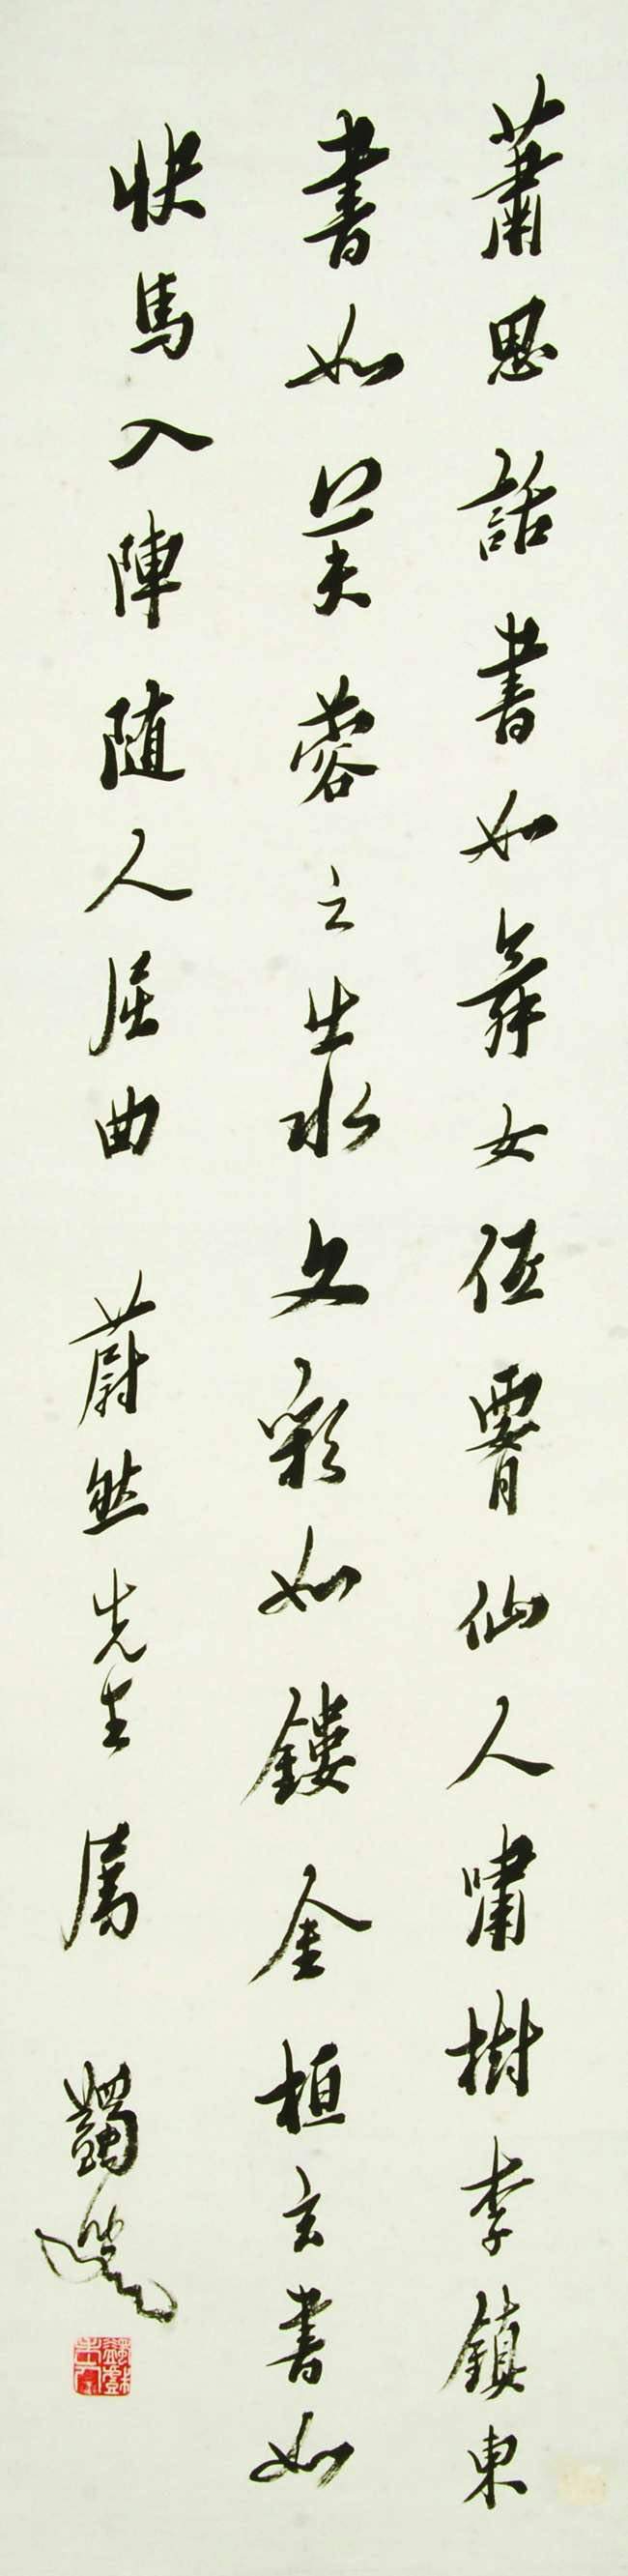 蕭思話書如舞女低䙅仙人嘯樹李鎮東
書如芙蓉之出水文彩如鏤金桓玄書如
快馬入陣随人屈曲 蔚然先生属 蠲叟